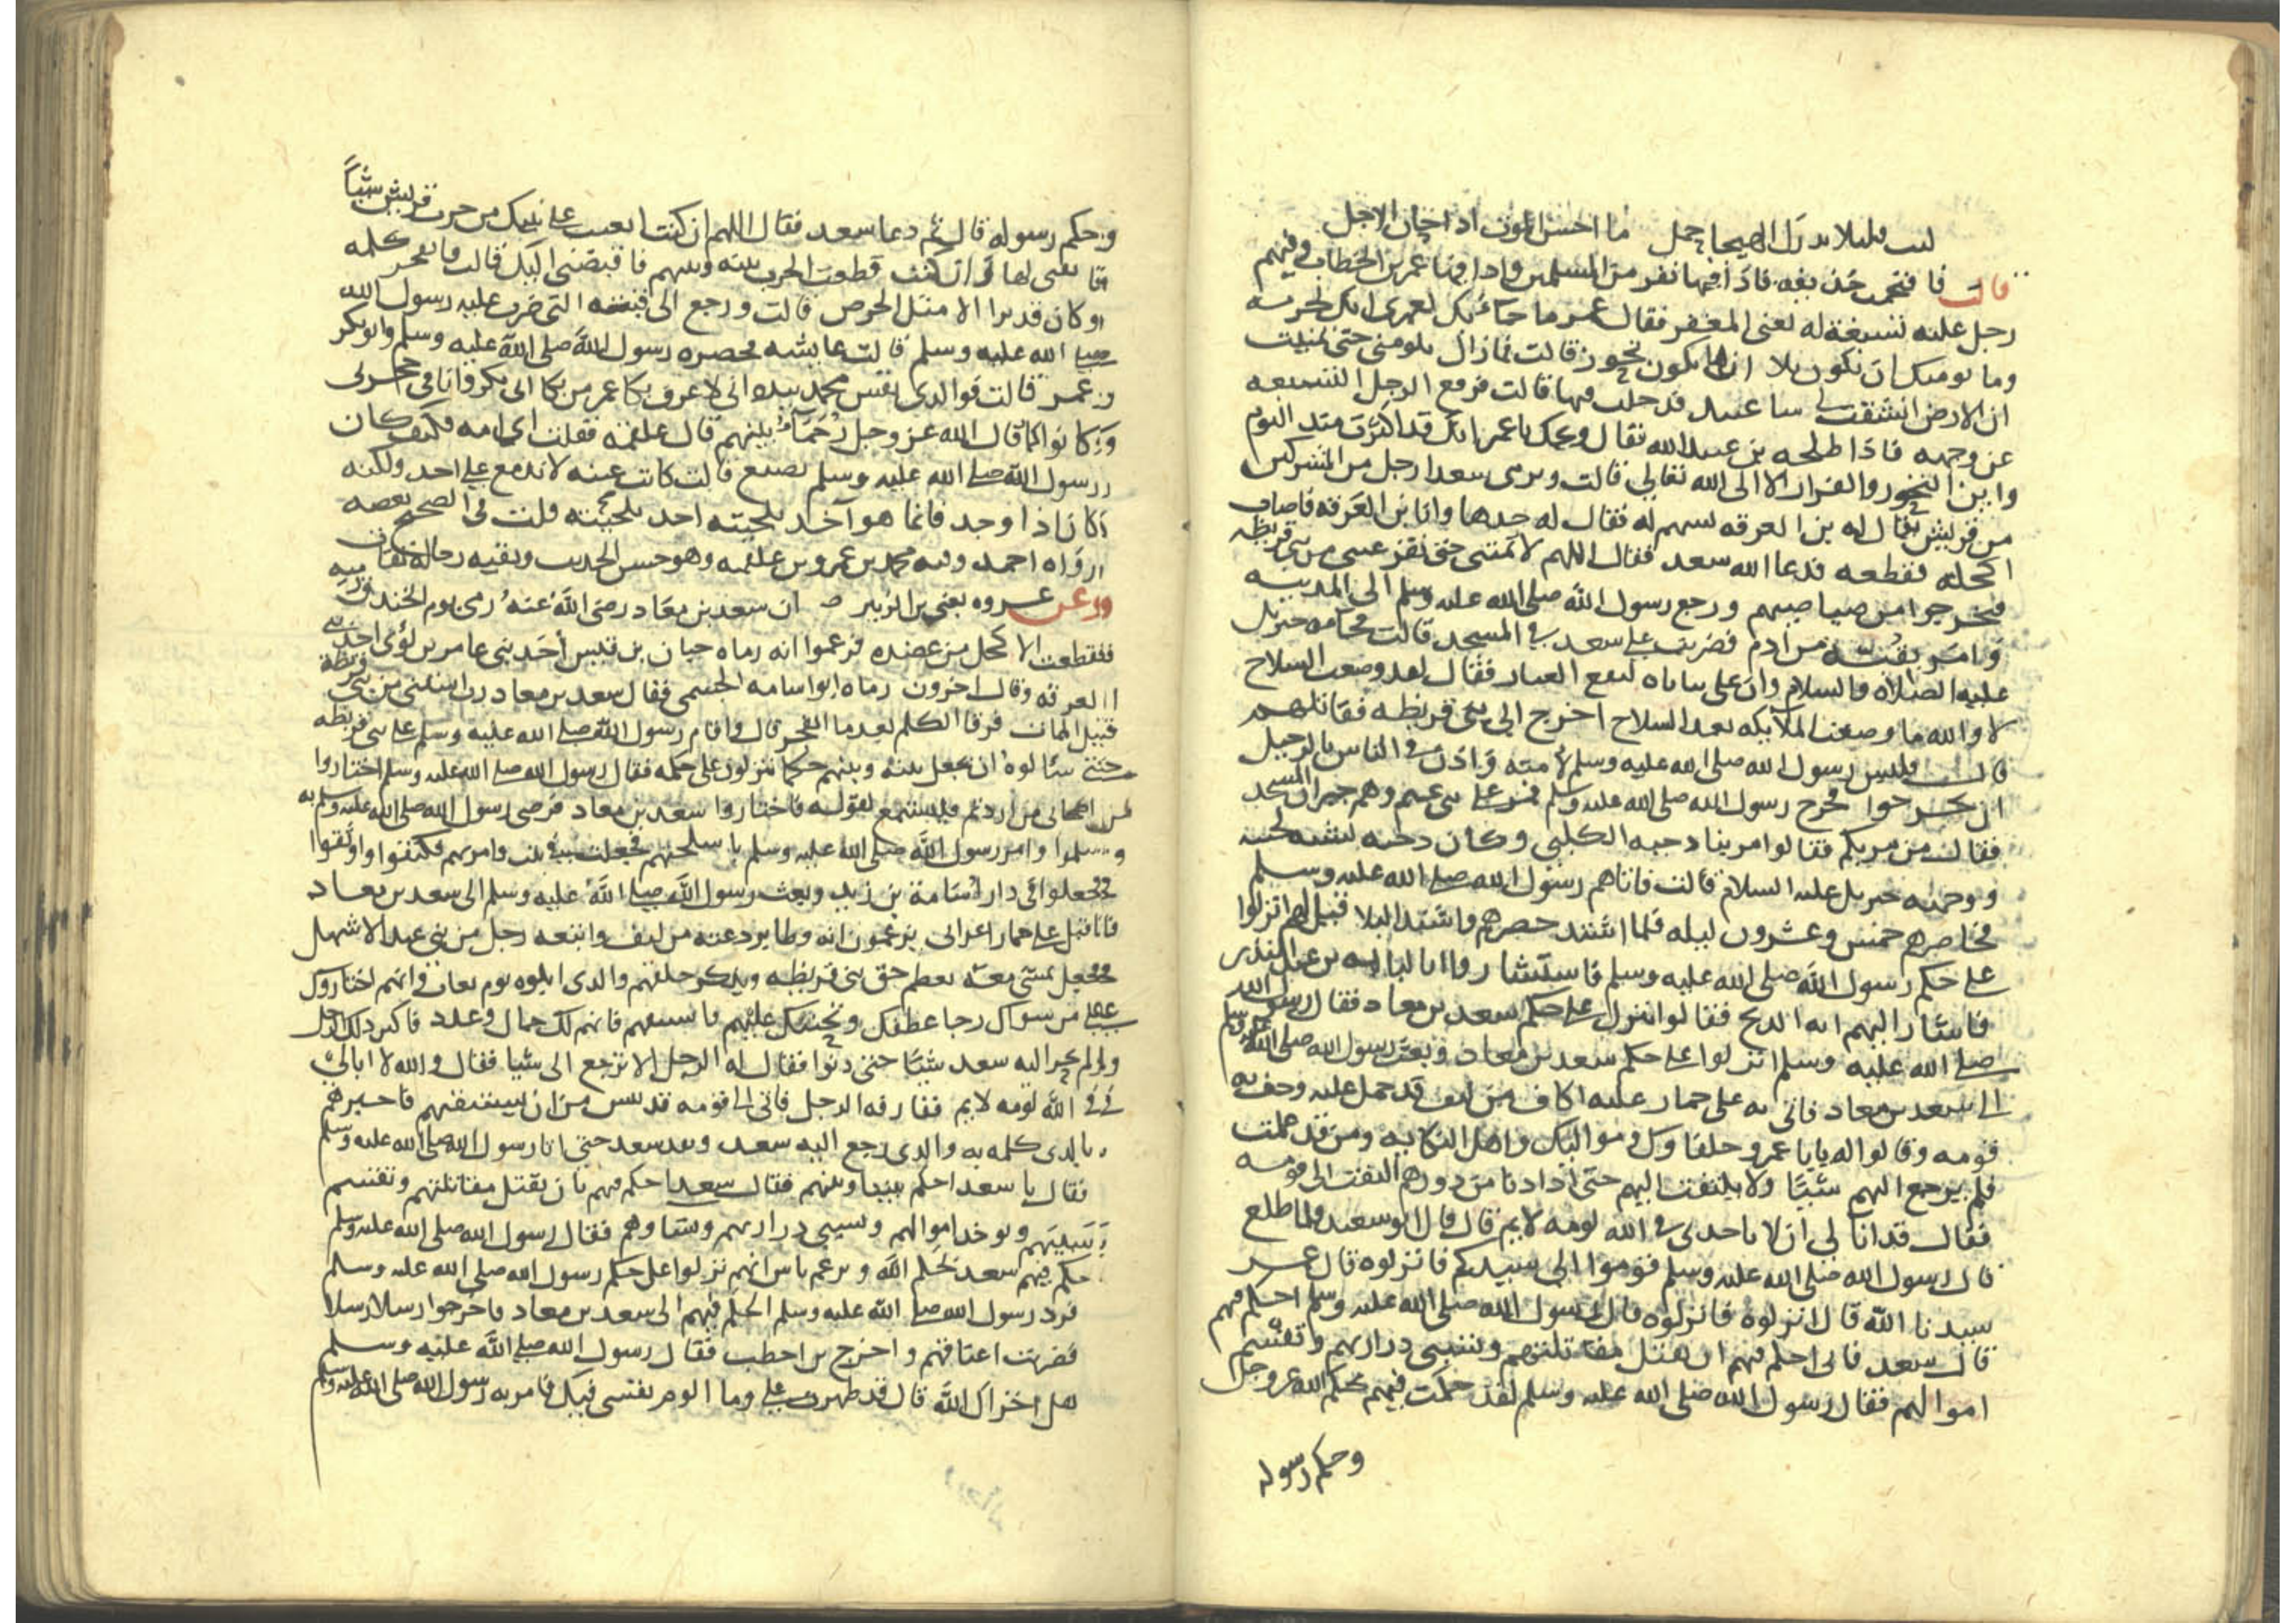 لبث قليلا يدرك الهيجا حمل ما احسن الموت اذا حان الاجل
قالت فاقتحمت حديقة فاذا فيها نفر من المسلمين واذا فيها عمر بن الخطاب وفيهم
رجل عليه تسبغة له يعني المغفر فقال عمر ما جاء بك لعمري انك لجريه
وما يومنك ان يكون بلا او يكون تحوز قالت فما زال يلومني حتى تمنيت
ان الارض انشقت لي ساعتيد فدخلت فيها قالت فرفع الرجل التسبغه
عن وجهه فاذا طلحه بن عبيد الله فقال ويحك يا عمر انك قد اكثرت منذ اليوم
واين التحوز والفرار الا الى الله تعالى قالت ويرمى سعدا رجل من المشركين
من قريش يقال له بن العرقه بسهم له فقال له خدها وانا بن العرقه فاصاب
اكحله فقطعه فدعا الله سعد فقال اللهم لا تمتني حتى تقر عيني من بني قريظه
فخرجوا من صياصيهم ورجع رسول الله صلى الله عليه وسلم الى المدينه
وامر بقبة من ادم فضربت على سعد في المسجد قالت فجاه جبريل
عليه الصلاة والسلام وان على ثناياه لنقع الغبار فقال لقد وضعت السلاح
لا والله ما وضعت الملايكه بعد السلاح اخرج الى بني قريظه فقاتلهم
قالت فلبس رسول الله صلى الله عليه وسلم لامته واذن في الناس بالرحيل
ان يخرجوا فخرج رسول الله صلى الله عليه وسلم فمر على بني غنم وهم جيران المسجد
فقال من مر بكم فقالوا مر بنا دحيه الكلبي وكان دحيه تشبه لحيته
ووجهه جبريل عليه السلام قالت فاتاهم رسول الله صلى الله عليه وسلم
فحاصرهم خمس وعشرون ليله فلما اشتد حصرهم واشتد البلا قيل لهم انزلوا
على حكم رسول الله صلى الله عليه وسلم فاستشاروا ابا لبابه بن عبد المنذر
فاشار اليهم انه الذبح فقالوا ننزل على حكم سعد بن معاد فقال رسول الله
صلى الله عليه وسلم انزلوا على حكم سعد بن معاد وبعث رسول الله صلى الله عليه وسلم
الى سعد بن معاد فاتى به على حمار عليه اكاف من ليف قد حمل عليه وحف به
قومه وقالوا له يا با عمرو حلفاوك ومواليك واهل النكايه ومن قد علمت
فلم يرجع اليهم شيئا ولا يلتفت اليهم حتى اذا دنا من دورهم التفت الى قومه
فقال قد انا لي ان لا ياخدني في الله لومه لايم قال قال ابو سعيد فلما طلع
قال رسول الله صلى الله عليه وسلم قوموا الى سيدكم فانزلوه قال عمر
سيدنا الله قال انزلوه فانزلوه قال رسول الله صلى الله عليه وسلم احكم فيهم
قال سعد فانى احكم فيهم ان تقتل مقاتلتهم وتسبى دراريهم وتقسم
اموالهم فقال رسول الله صلى الله عليه وسلم لقد حكمت فيهم بحكم الله عز وجل
وحكم رسوله
وحكم رسوله قال ثم دعا سعد فقال اللهم ان كنت ابقيت على نبيك من حرب قريش شيئاً
فابقني لها وان كنت قطعت الحرب بينه وبينهم فاقبضني اليك قالت فانفجر كلمه
وكان قد برا الا مثل الخرص قالت ورجع الى قبته التي ضرب عليه رسول الله
صلى الله عليه وسلم قالت عايشه فحضره رسول الله صلى الله عليه وسلم وابو بكر
وعمر قالت فوالدي نفس محمد بيده اني لاعرف بكا عمر من بكا ابي بكر وانا في حجرتي
وكانوا كما قال الله عز وجل رحماء بينهم قال علقمه فقلت اي امه فكيف كان
رسول الله صلى الله عليه وسلم يصنع قالت كانت عينه لا تدمع على احد ولكنه
كان اذا وجد فانما هو آخد بلحيته قلت في الصحيح بعضه
رواه احمد وفيه محمد بن عمرو بن علقمه وهو حسن الحديث وبقيه رجاله ثقات
وعن عروه يعني بن الزبير ان سعد بن معاد رضي الله عنه رمى يوم الخندق رميه
فقطعت الاكحل من عضده فزعموا انه رماه حيان بن قيس أحد بني عامر بن لؤي احد بني
العرقه وقال اخرون رماه ابو اسامه الجشمي فقال سعد بن معاد رب اشفني من بني قريظة
قبل الممات فرقا الكلم بعدما انفجر قال واقام رسول الله صلى الله عليه وسلم على بني قريظه
حتى سالوه ان يجعل بينه وبينهم حكما ينزلون على حكمه فقال رسول الله صلى الله عليه وسلم اختاروا
من اصحابي من اردتم فليستمع لقوله فاختاروا سعد بن معاد فرضي رسول الله صلى الله عليه وسلم به
وسلموا وامر رسول الله صلى الله عليه وسلم باسلحتهم فجعلت في بيت وامر بهم فكتفوا واوثقوا
فجعلوا في دار اسامة بن زيد وبعث رسول الله صلى الله عليه وسلم الى سعد بن معاد
فاقبل على حمار اعرابي يزعمون انه وطا بردعته من ليف واتبعه رجل من بني عبد الاشهل
فجعل يمشي معه يعظم حق بني قريظه ويذكر حلفهم والدي ابلوه يوم بعاث وانهم اختاروك
على من سواك رجا عطفك وتحننك عليهم فاستبقهم فانهم لك جمال وعدد فاكثر ذلك الرجل
ولم يحر اليه سعد شيئا حتى دنوا فقال له الرجل الا ترجع الى شيئا فقال والله لا ابالي
في الله لومه لايم ففارقه الرجل فاتى الى قومه قد يئس من ان يستبقيهم فاخبرهم
بالدي كلمه به والدي رجع اليه سعد ونفد سعد حتى اتا رسول الله صلى الله عليه وسلم
فقال يا سعد احكم بيننا وبينهم فقال سعد احكم فيهم بان تقتل مقاتلتهم وتقسم
سبيهم وتوخد اموالهم وتسبى دراريهم ونساوهم فقال رسول الله صلى الله عليه وسلم
حكم فيهم سعد بحكم الله ويزعم ناس انهم نزلوا على حكم رسول الله صلى الله عليه وسلم
فرد رسول الله صلى الله عليه وسلم الحكم فيهم الى سعد بن معاد فاخرجوا رسلا رسلا
فضربت اعناقهم واخرج بن اخطب فقال رسول الله صلى الله عليه وسلم
هل اخزاك الله قال قد ظهرت علي وما الوم نفسي فيك فامر به رسول الله صلى الله عليه وسلم